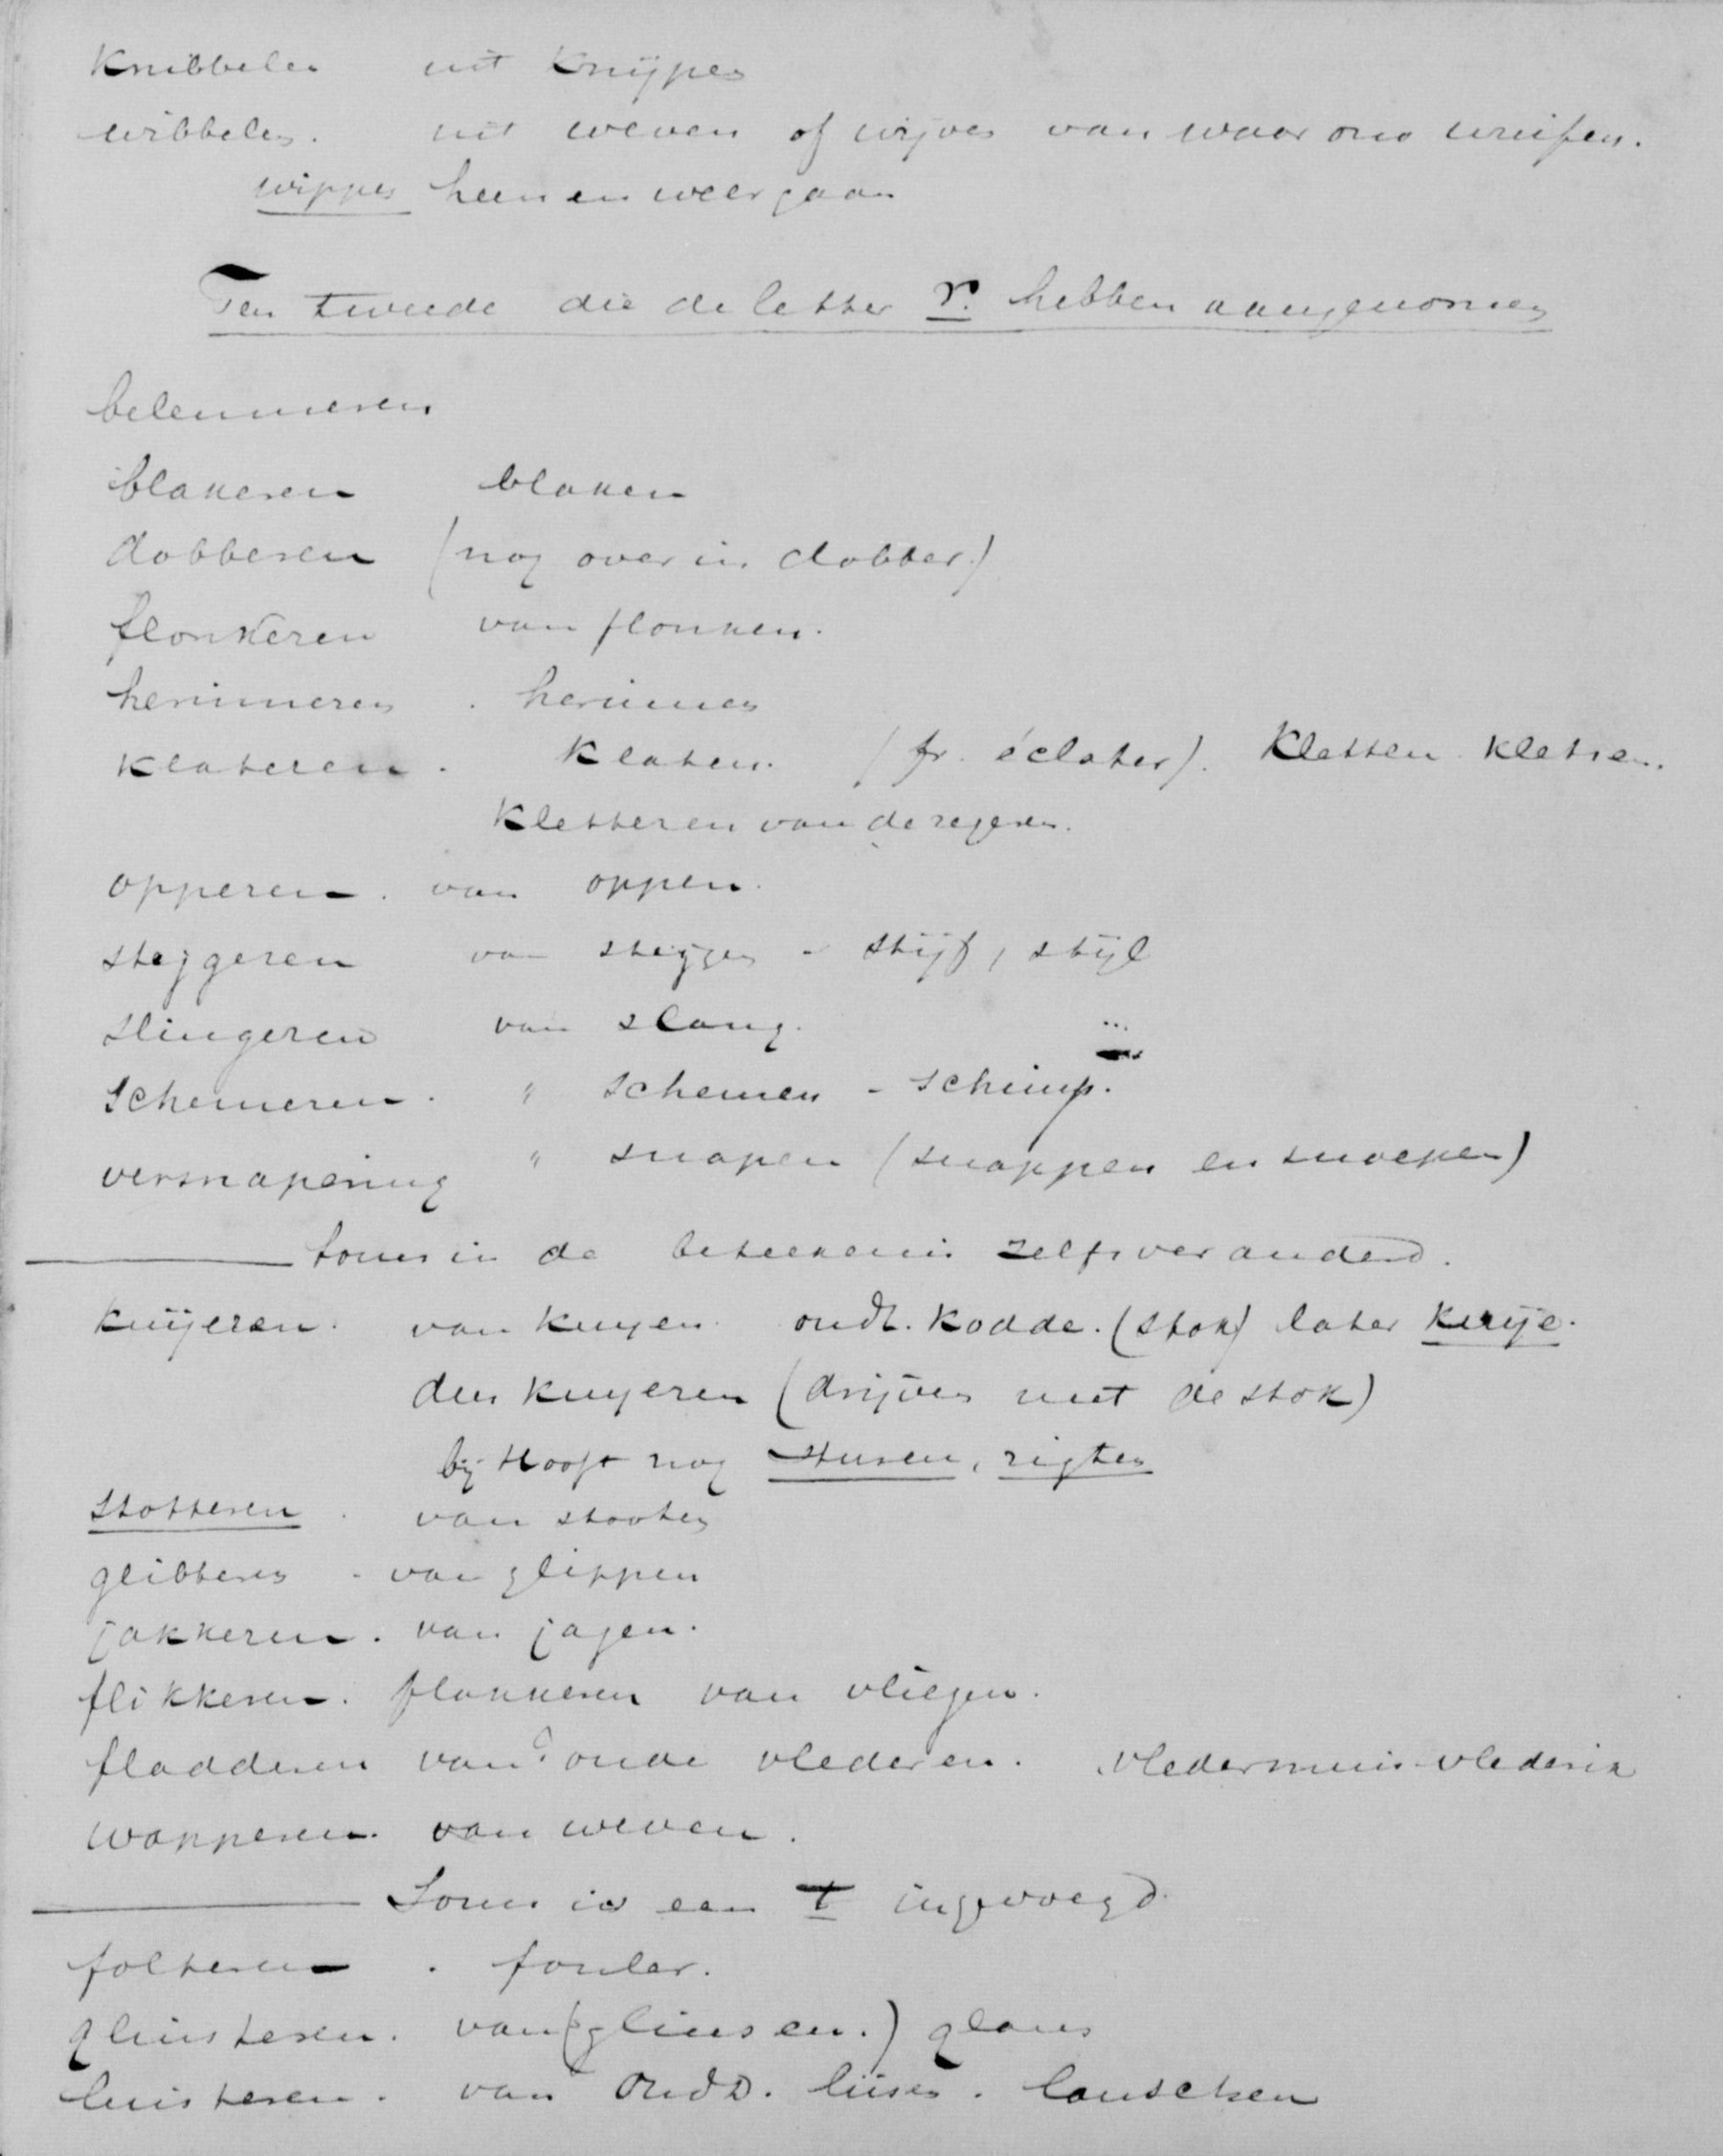 Knibbelen uit Knijpen
wibbelen. uit weven of wijven van waar ons wuifen.
wippen heen en weer gaan
Ten tweede die de letter r. hebben aangenomen
belemmeren
blakeren blaken
dobberen (nog over in dobber.)
flonkeren van flonken.
herinneren . herinnen
klateren . Klaten. (fr. éclater). Kletten Kletsen.
Kletteren van de regen.
opperen . van oppen.
steigeren van steigen - stijf, stijl
slingeren van slang.
Schemeren . " Schemen - schimp.
versnapering " snapen (snappen en snoepen)
soms in de beteekenis zelfs veranderd.
kuijeren. van kuyen oudt. Kodde. (stok) later kuije.
dus kuyeren (drijven met de stok)
bij Hooft nog sturen, rigten
Stotteren . van stooten
glibberen . van glippen
jakkeren . van jagen.
flikkeren. flakkeren van vliegen.
fladderen van oude vlederen. vledermuis vlederik
wapperen. van weven.
Soms is een t ingevoegd.
folteren . fouler.
glinsteren. van (glinsen.) glans
luisteren. van Oudd. lüsen. lauschen